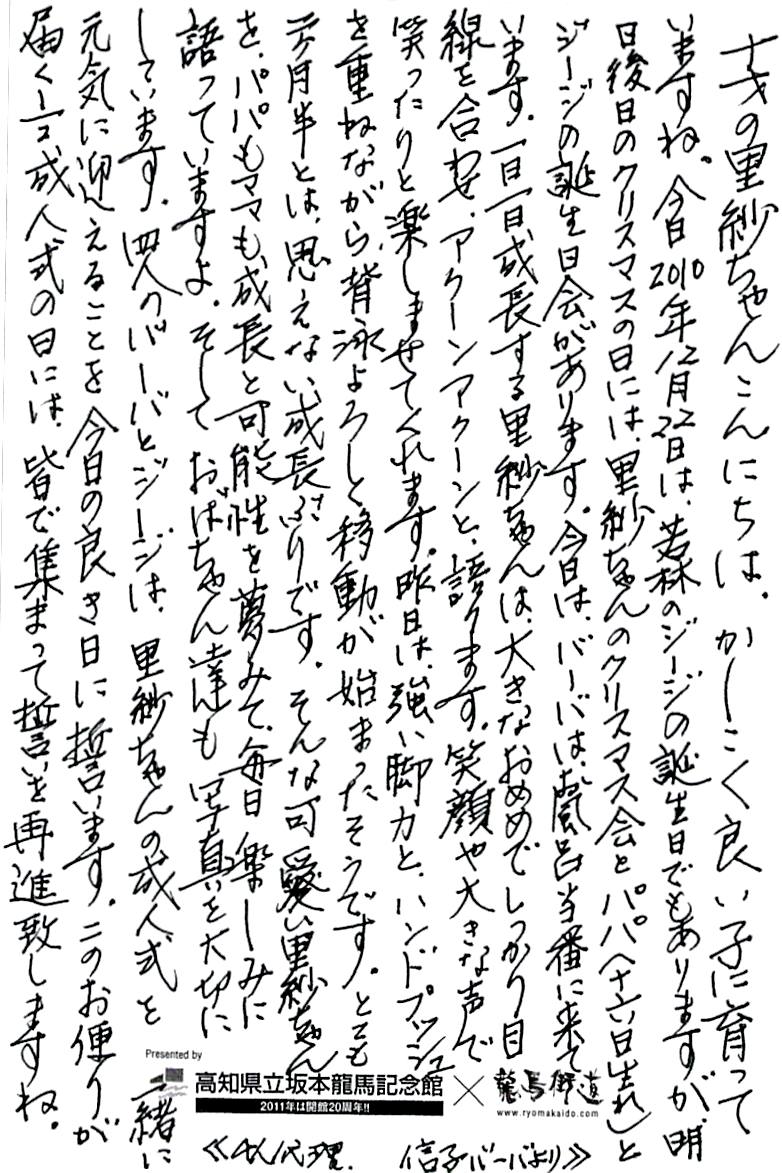 十才の里紗ちゃんこんにちは、かしこく良い子に育って
いますね。今日2010年12月22日は、若林のジージの誕生日でもありますが、明
日後日のクリスマスの日には、里紗ちゃんのクリスマス会とパパ(十六日生れ)と
ジージの誕生日会があります。今日は、バーバは、風呂当番に来て
います。一日一日成長する里紗ちゃんは、大きなおめめでしっかり目
線を合わせ、アクーンアクーンと、語ります。笑顔や大きな声で
笑ったりと楽しませてくれます。昨日は、強い脚力と、ハンドプッシュ
を重ねながら、背泳よろしく移動が始まったそうです。とても
三ヶ月半とは、思えない成長ぶりです。そんな可愛い里紗ちゃん
を、パパもママも、成長と可能性を夢みて、毎日楽しみに
語っていますよ。そして おばちゃん達も 写真を大切に
しています。四人のバーバとジージは、里紗ちゃんの成人式を 一緒に
元気に迎えることを今日の良き日に誓います。このお便りが
届く 成人式の日には、皆で集まって誓いを再進致しますね。
Presented by
高知県立坂本龍馬記念館 × 龍馬街道
2011年は開館20周年!!
www.ryomakaido.com
≪四人代理. 信子バーバより≫